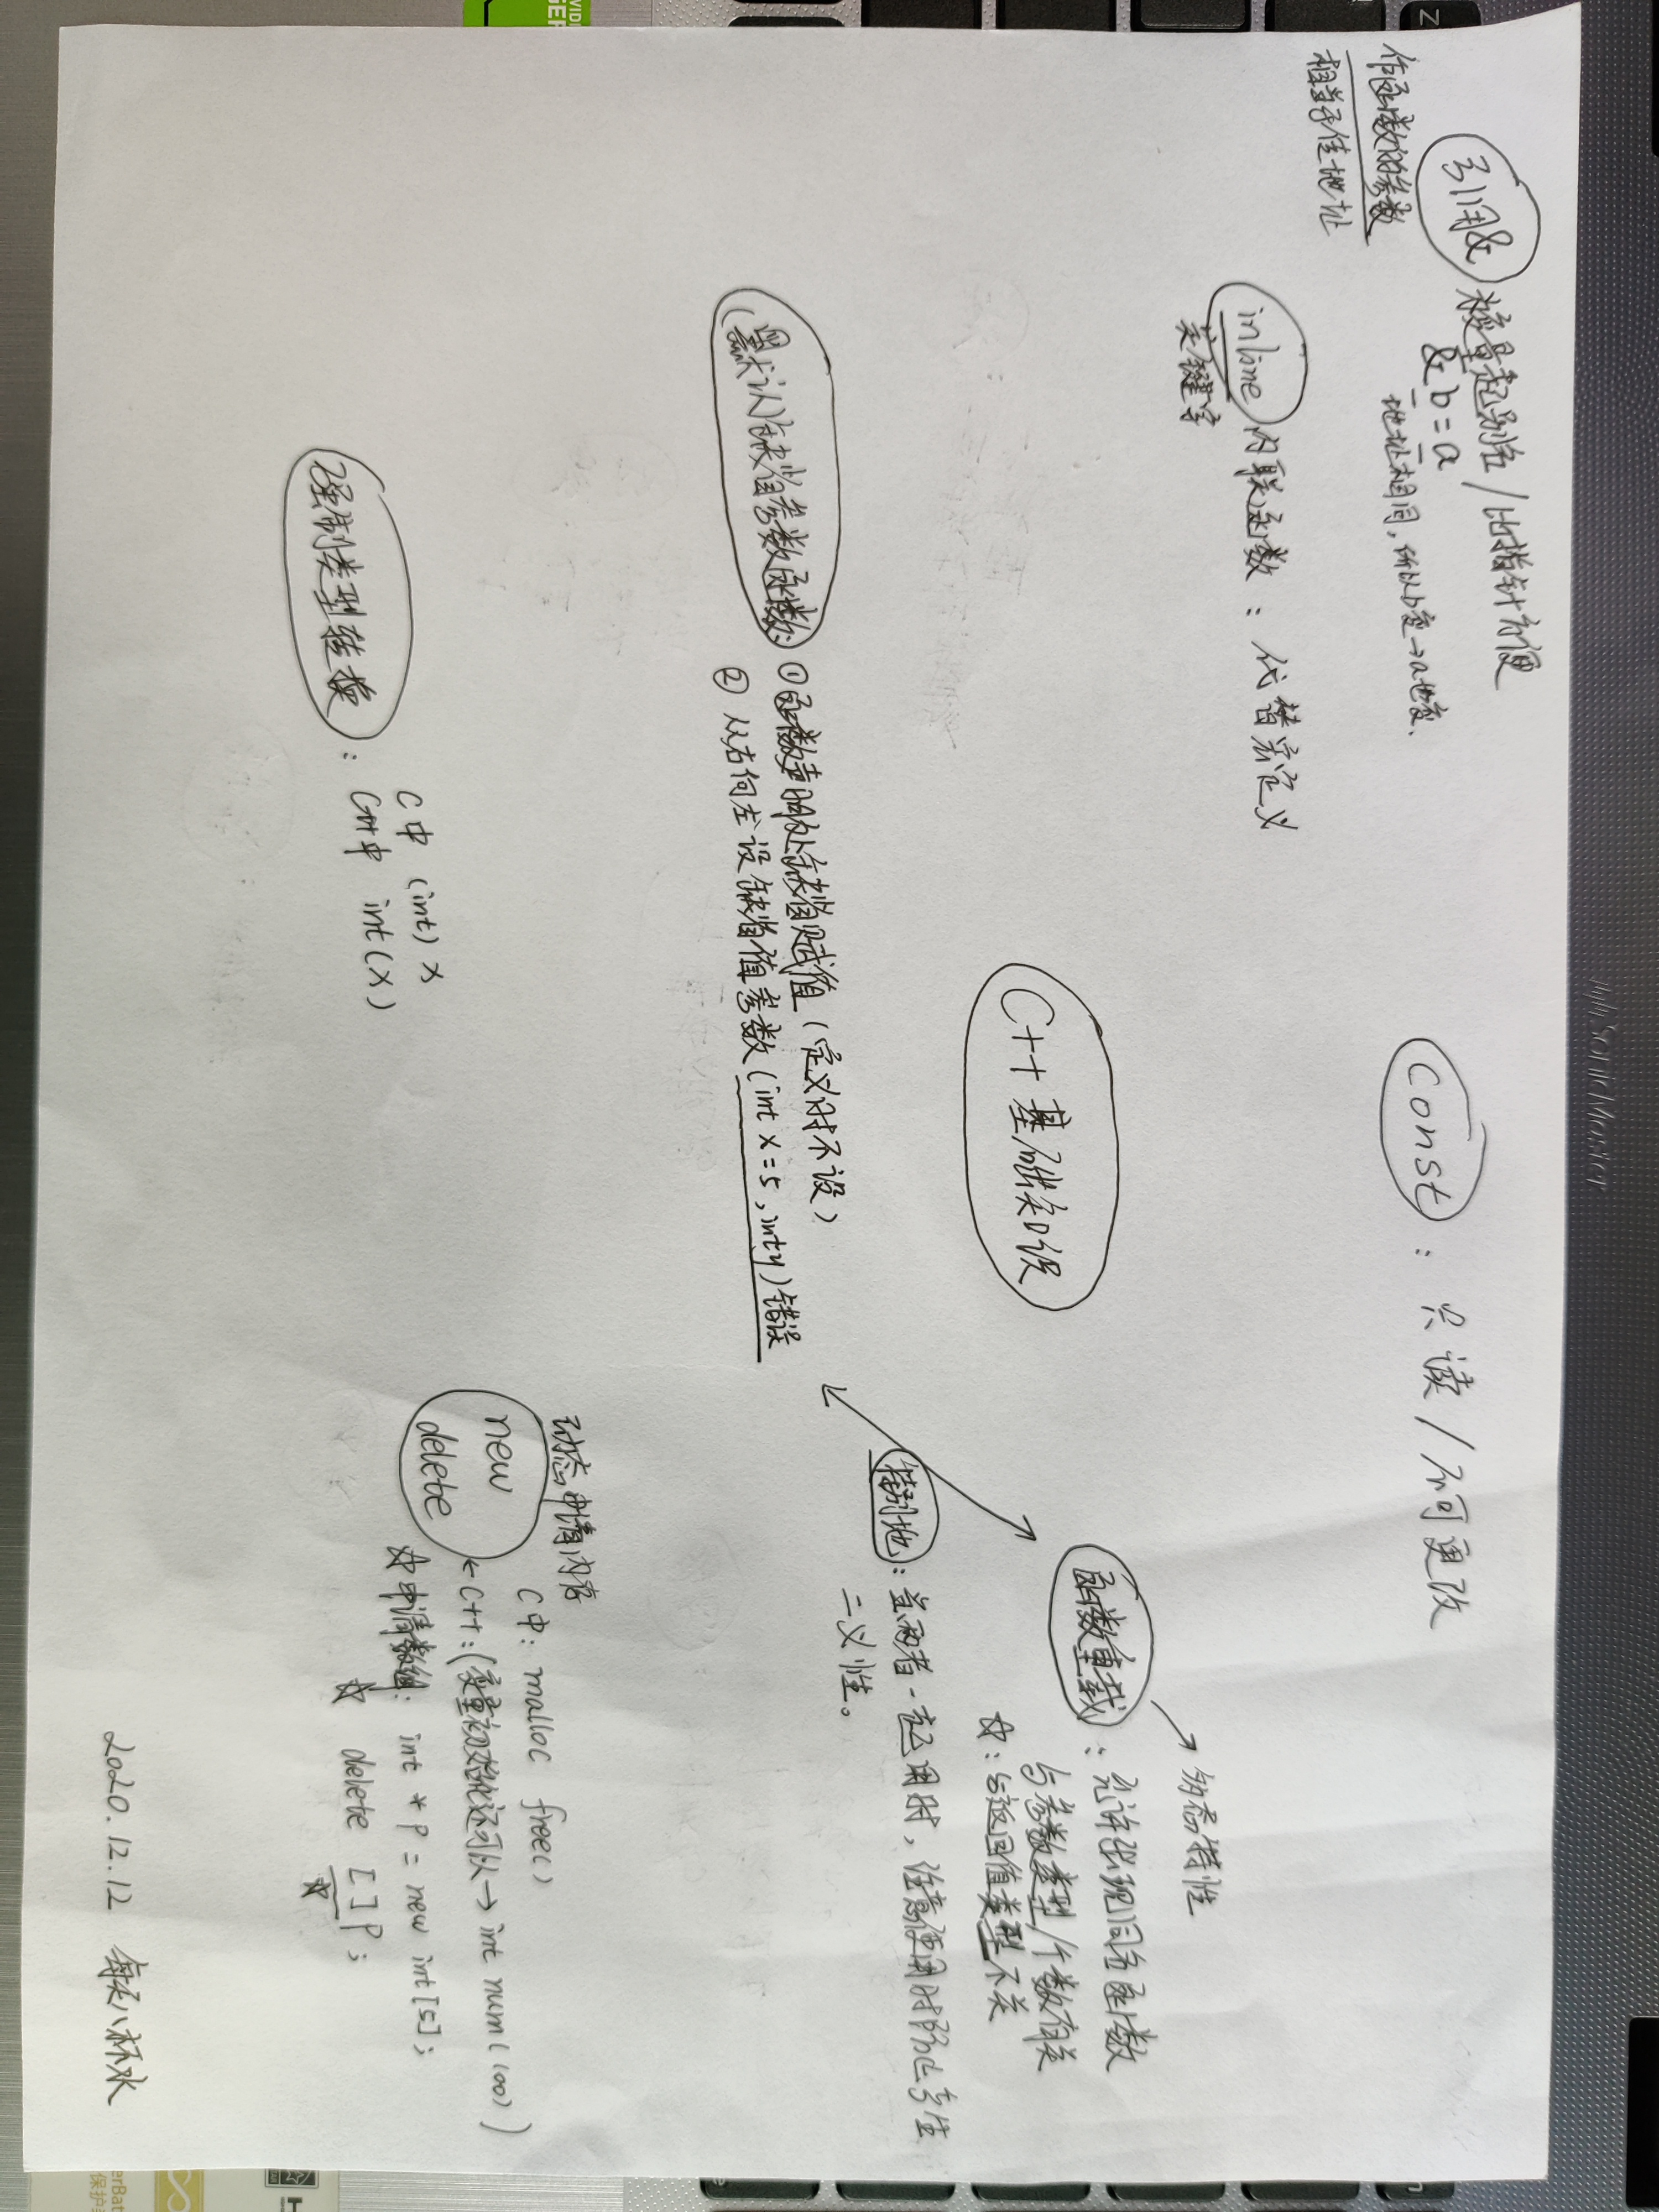 引用&
给变量起别名/比指针方便
&b=a
地址相同,所以b变→a也变.
作函数的参数
相当于传地址
const:只读/不可更改
inline 内联函数:代替宏定义
关键字
C++基础知识
函数重载
→多态特性
:允许出现同名函数
与参数类型/个数有关
☆:与返回值类型不关
特别地:当两者一起用时,注意使用时防止产生
二义性。
(默认)缺省参数函数:
①函数声明处缺省赋值(定义时不设)
②从右向左设缺省值参数(int x=5,int y)错误
强制类型转换:
C中 (int) x
C++中 int(x)
动态申请内存
new
delete
C中:malloc free()
←C++:(变量初始化还可以→int num(100))
☆申请数组: int *p = new int[5];
☆ delete []p;
☆
2020.12.12 每天八杯水
SonicMaster